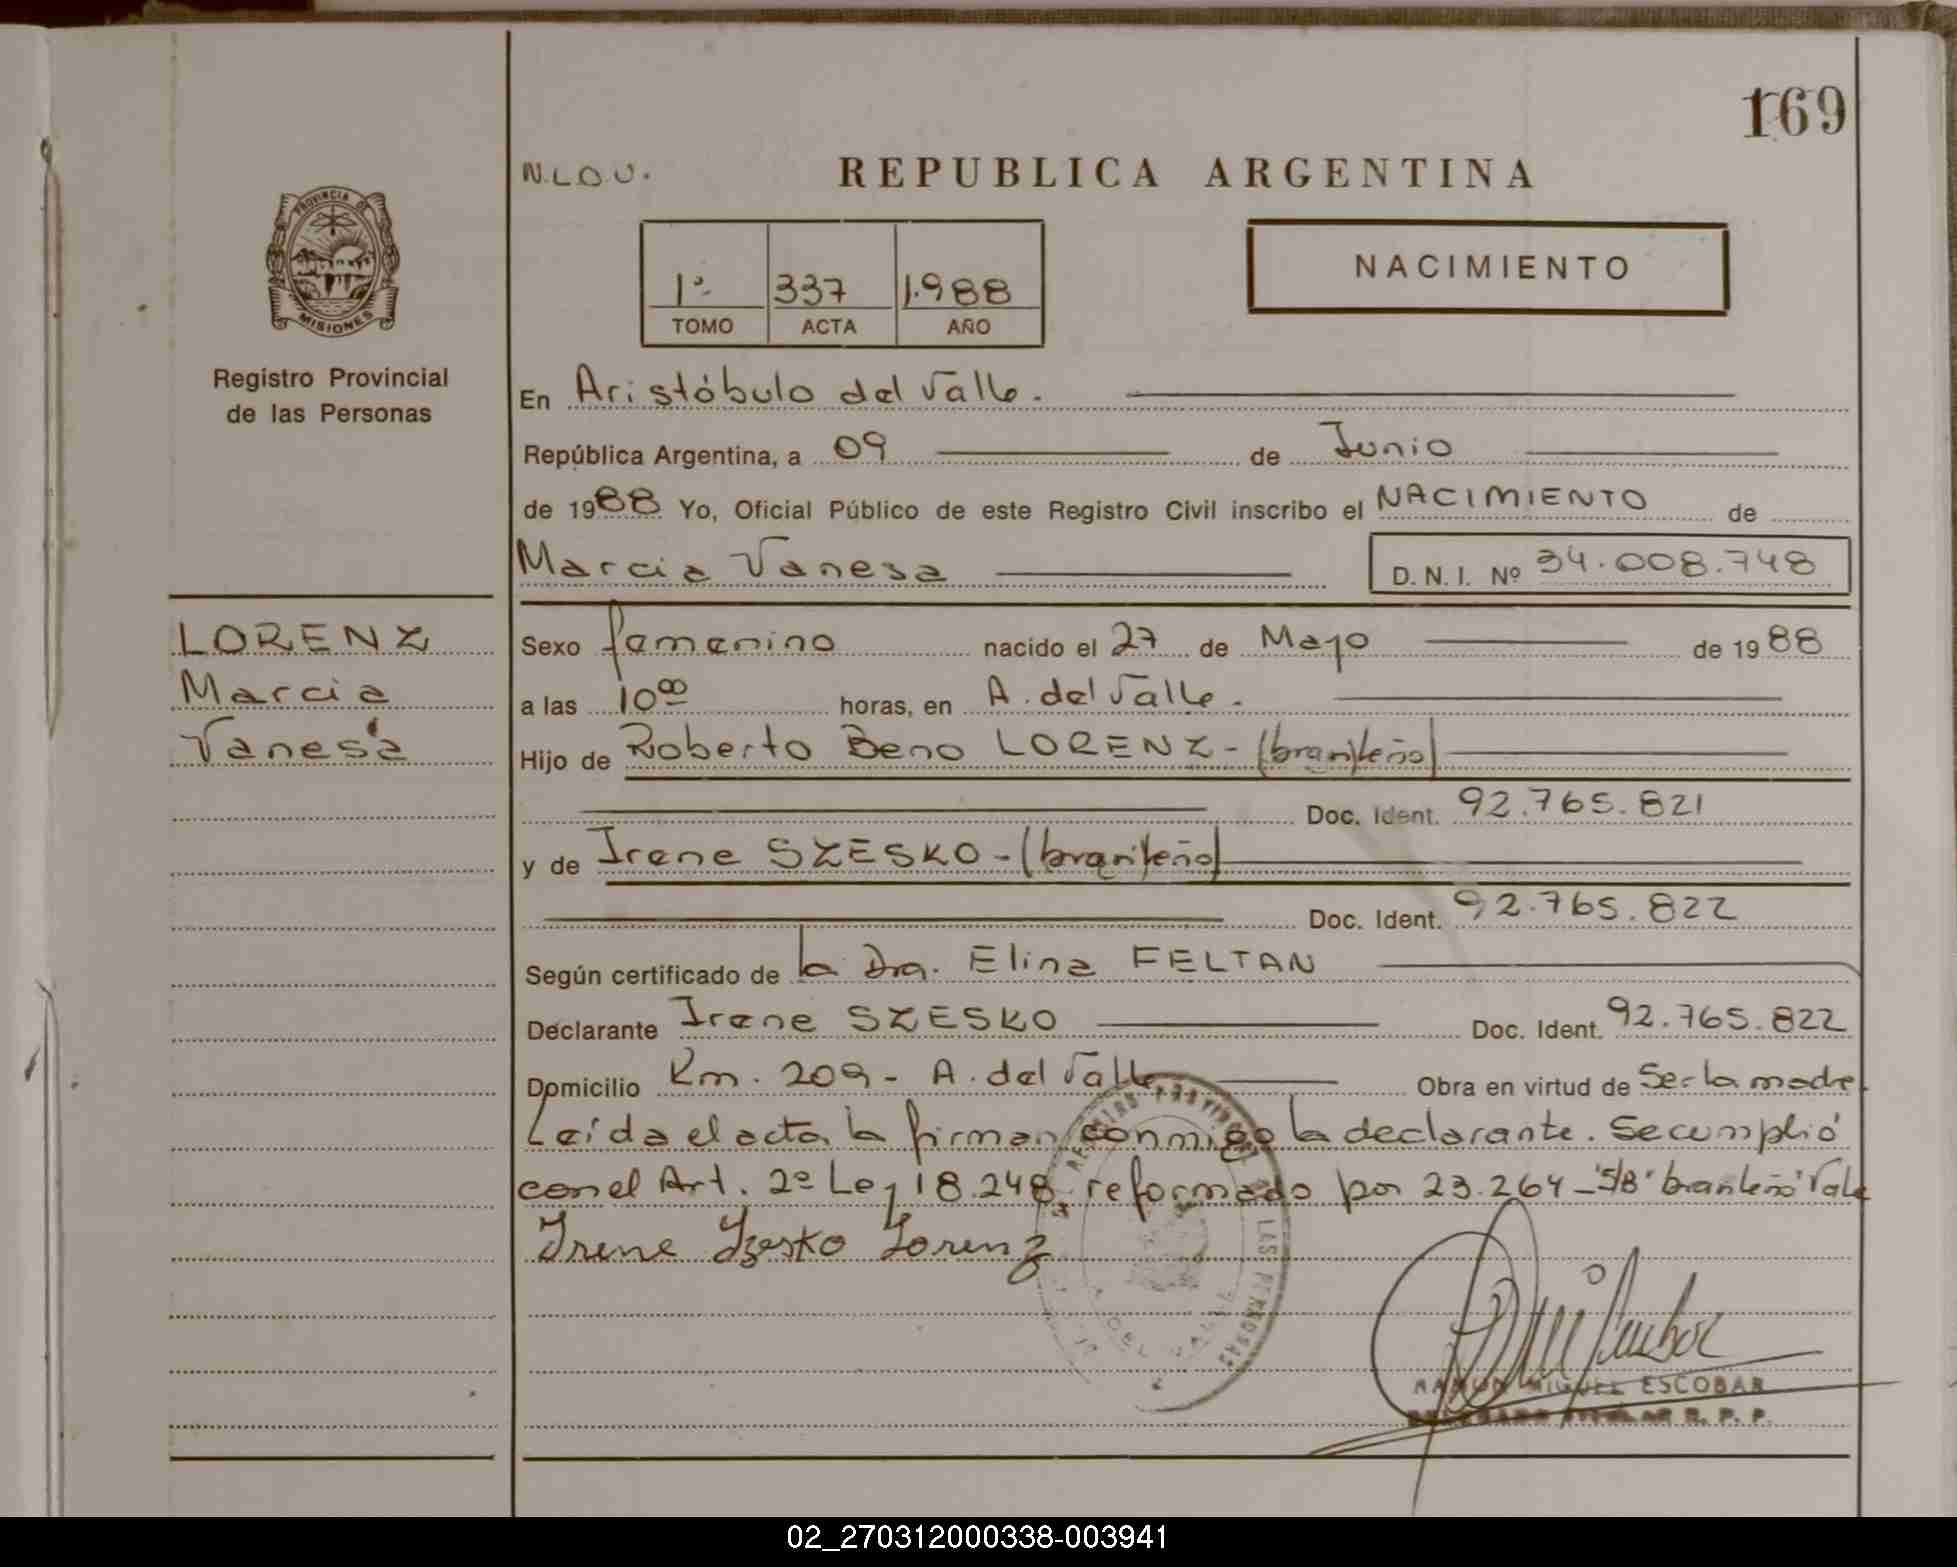 169
N.L.O.U.
REPUBLICA ARGENTINA
PROVINCIA DE
MISIONES
Registro Provincial
de las Personas
1º 337 1.988
TOMO ACTA AÑO
NACIMIENTO
En Aristóbulo del Valle.
República Argentina, a 09 de Junio
de 1988 Yo, Oficial Público de este Registro Civil inscribo el NACIMIENTO de
Marcia Vanesa D.N.I. Nº 34.008.748
LORENZ
Marcia
Vanesa
Sexo femenino nacido el 27 de Mayo de 1988
a las 10 00 horas, en A. del Valle.
Hijo de Roberto Beno LORENZ - (brasileño)
Doc. Ident. 92.765.821
y de Irene SZESKO - (brasileño)
Doc. Ident. 92.765.822
Según certificado de la Dra. Elina FELTAN
Declarante Irene SZESKO Doc. Ident. 92.765.822
Domicilio Km. 209 - A. del Valle Obra en virtud de Ser la madre.
Leída el acta, la firman conmigo la declarante. Se cumplió
con el Art. 2º Ley 18.248 reformado por 23.264 - S/B "brasileño" Vale
Irene Szesko Lorenz
LAS PERSONAS
A. DEL VALLE
RAMON MIGUEL ESCOBAR
DELEGADO TITULAR R. P. P.
02_270312000338-003941